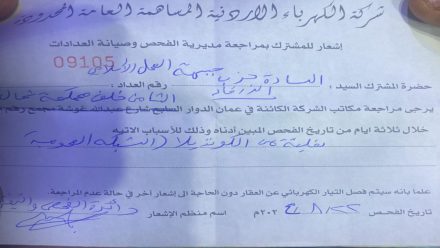 شركة الكهرباء الاردنية المساهمة العامة المحدودة
إشعار للمشترك بمراجعة مديرية الفحص وصيانة العدادات
09105
حضرة المشترك السيد : السادة حزب جبهة العمل الإسلامي
رقم العداد :
يرجى مراجعة مكاتب الشركة الكائنة في عمان الدوار السابع شارع عبدالله غوشة مجمع رقم
خلال ثلاثة ايام من تاريخ الفحص المبين أدناه وذلك للأسباب الاتيه
علما بأنه سيتم فصل التيار الكهربائي عن العقار دون الحاجة الى إشعار آخر في حالة عدم المراجعة.
تاريخ الفحص ٢٢/٨/٢٠٢٤م
اسم منظم الإشعار دائرة الفحص